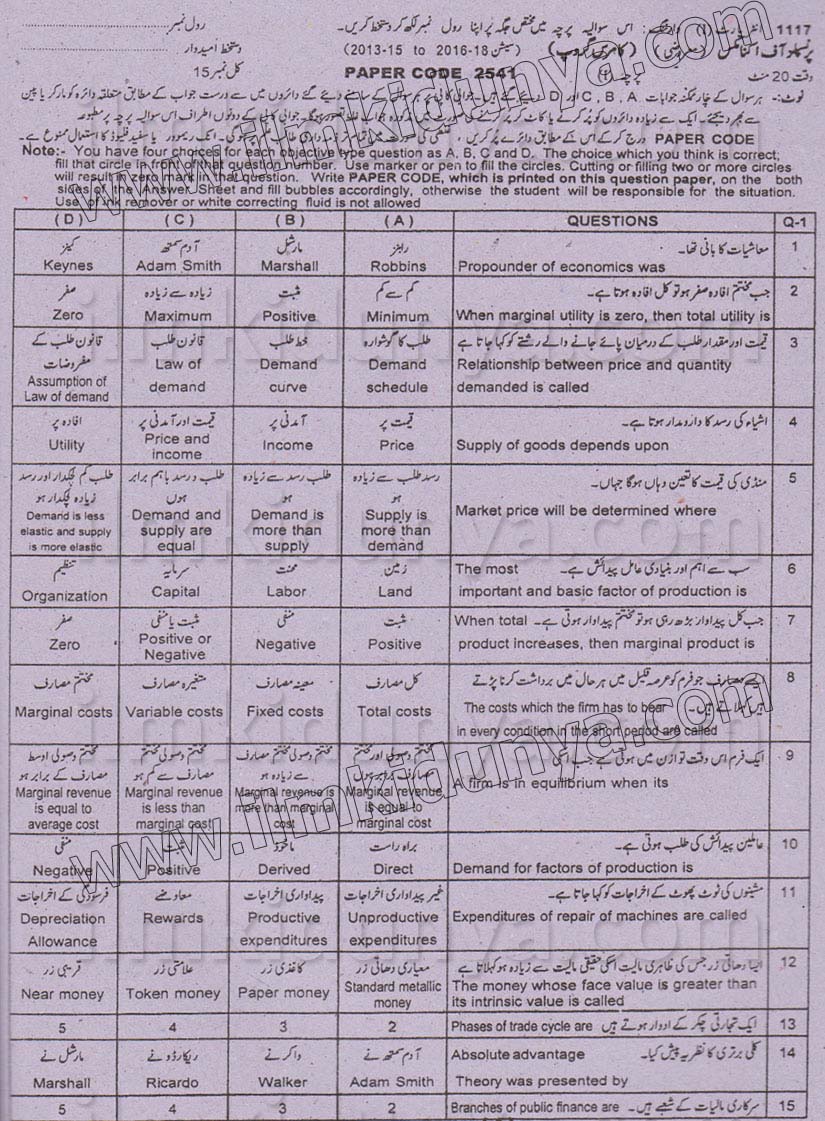 رول نمبر
1117
پرنسپلز آف اکنامکس (کامرس گروپ)
دستخط امیدوار
اس سوالیہ پرچہ میں مختص جگہ پر اپنا رول نمبر لکھ کر دستخط کریں۔
(سیشن 2013-15 to 2016-18)
وقت 20 منٹ
PAPER CODE 2541
کل نمبر 15
Note:- You have four choices for each objective type question as A, B, C and D. The choice which you think is correct;
fill that circle in front of that question number. Use marker or pen to fill the circles. Cutting or filling two or more circles
will result in zero mark in that question. Write PAPER CODE, which is printed on this question paper, on the both
sides of the Answer Sheet and fill bubbles accordingly, otherwise the student will be responsible for the situation.
Use of ink remover or white correcting fluid is not allowed
(D) (C) (B) (A) QUESTIONS Q-1
کینز آدم سمتھ مارشل رابنز معاشیات کا بانی تھا۔ 1
Keynes Adam Smith Marshall Robbins Propounder of economics was
صفر زیادہ سے زیادہ مثبت کم سے کم جب مختتم افادہ صفر ہو تو کل افادہ ہوتا ہے۔ 2
Zero Maximum Positive Minimum When marginal utility is zero, then total utility is
قانون طلب کے مفروضات قانون طلب خط طلب طلب کا گوشوارہ قیمت اور مقدار طلب کے درمیان پائے جانے والے رشتے کو کہا جاتا ہے 3
Assumption of Law of demand Law of demand Demand curve Demand schedule Relationship between price and quantity demanded is called
افادہ پر قیمت اور آمدنی پر آمدنی پر قیمت پر اشیاء کی رسد کا دارومدار ہوتا ہے۔ 4
Utility Price and income Income Price Supply of goods depends upon
طلب کم لچکدار اور رسد زیادہ لچکدار ہو طلب و رسد باہم برابر ہوں طلب رسد سے زیادہ ہو رسد طلب سے زیادہ ہو منڈی کی قیمت کا تعین وہاں ہوگا جہاں۔ 5
Demand is less elastic and supply is more elastic Demand and supply are equal Demand is more than supply Supply is more than demand Market price will be determined where
تنظیم سرمایہ محنت زمین سب سے اہم اور بنیادی عامل پیدائش ہے۔ 6
Organization Capital Labor Land The most important and basic factor of production is
صفر مثبت یا منفی منفی مثبت جب کل پیداوار بڑھ رہی ہو تو مختتم پیداوار ہوتی ہے۔ 7
Zero Positive or Negative Negative Positive When total product increases, then marginal product is
مختتم مصارف متغیرہ مصارف معینہ مصارف کل مصارف ایسے مصارف جو فرم کو عرصہ قلیل میں ہر حال میں برداشت کرنا پڑتے ہیں کہلاتے ہیں۔ 8
Marginal costs Variable costs Fixed costs Total costs The costs which the firm has to bear in every condition in the short period are called
مختتم وصولی اوسط مصارف کے برابر ہو مختتم وصولی مختتم مصارف سے کم ہو مختتم وصولی مختتم مصارف سے زیادہ ہو مختتم وصولی اور مختتم مصارف برابر ہوں ایک فرم اس وقت توازن میں ہوتی ہے جب اسکی 9
Marginal revenue is equal to average cost Marginal revenue is less than marginal cost Marginal revenue is more than marginal cost Marginal revenue is equal to marginal cost A firm is in equilibrium when its
منفی مثبت ماخوذ براہ راست عاملین پیدائش کی طلب ہوتی ہے۔ 10
Negative Positive Derived Direct Demand for factors of production is
فرسودگی کے اخراجات معاوضے پیداواری اخراجات غیر پیداواری اخراجات مشینوں کی ٹوٹ پھوٹ کے اخراجات کو کہا جاتا ہے۔ 11
Depreciation Allowance Rewards Productive expenditures Unproductive expenditures Expenditures of repair of machines are called
قریبی زر علامتی زر کاغذی زر معیاری دھاتی زر ایسا دھاتی زر جس کی ظاہری مالیت اسکی حقیقی مالیت سے زیادہ ہو کہلاتا ہے 12
Near money Token money Paper money Standard metallic money The money whose face value is greater than its intrinsic value is called
5 4 3 2 Phases of trade cycle are ایک تجارتی چکر کے ادوار ہوتے ہیں 13
مارشل نے ریکارڈو نے واکر نے آدم سمتھ نے کلی برتری کا نظریہ پیش کیا۔ 14
Marshall Ricardo Walker Adam Smith Absolute advantage Theory was presented by
5 4 3 2 Branches of public finance are سرکاری مالیات کے شعبے ہیں۔ 15
www.ilmkidunya.com
www.ilmkidunya.com